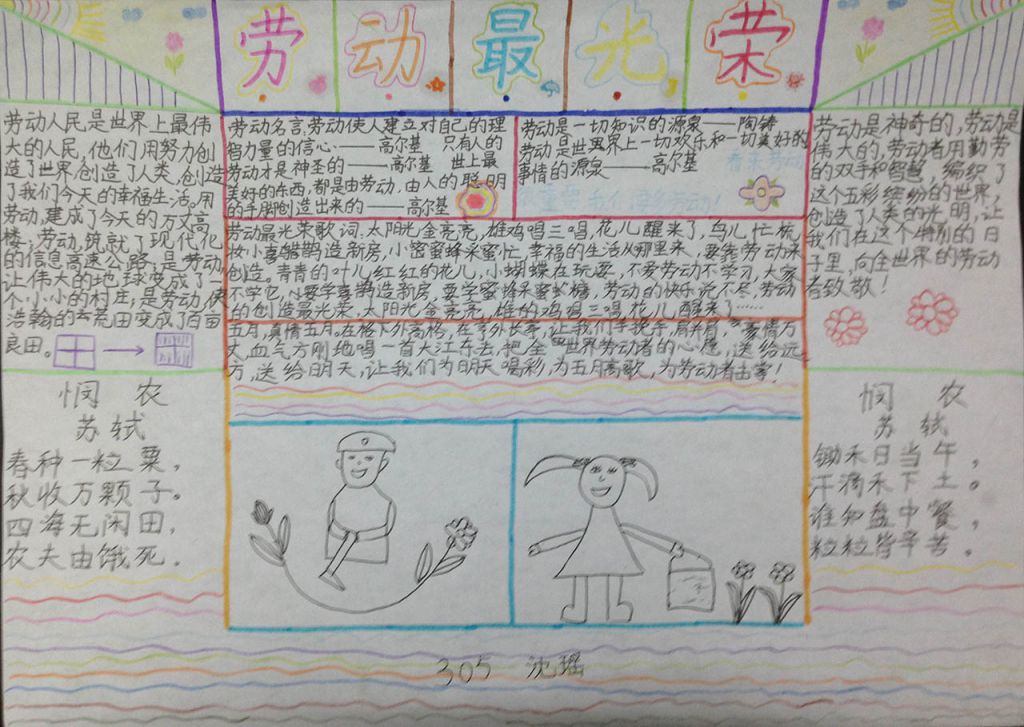 劳动最光荣
劳动人民是世界上最伟
大的人民，他们用努力创
造了世界，创造了人类，创造
了我们今天的幸福生活。用
劳动，建成了今天的万丈高
楼；劳动，筑就了现代化
的信息高速公路，是劳动，
让伟大的地球变成了一
个小小的村庄；是劳动，使
浩翰的荒田变成了百亩
良田。
劳动名言，劳动使人建立对自己的理
智力量的信心——高尔基 只有人的
劳动才是神圣的——高尔基 世上最
美好的东西，都是由劳动，由人的聪明
的手脚创造出来的——高尔基
劳动是一切知识的源泉——陶铸
劳动是世界上一切欢乐和一切美好的
事情的源泉——高尔基
劳动最光荣歌词，太阳光金亮亮，雄鸡唱三唱，花儿醒来了，鸟儿忙梳
妆小喜鹊造新房，小密蜜蜂采蜜忙，幸福的生活从哪里来，要靠劳动来
创造，青青的叶儿红红的花儿，小蝴蝶在玩耍，不爱劳动不学习，大家
不学它，要学喜鹊造新房，要学蜜蜂采蜜糖，劳动的快乐说不尽，劳动
的创造最光荣，太阳光金亮亮，雄的鸡鸡三唱，花儿醒来了……
五月，真情五月，在格外外高格，在
让我们手挽手，肩并肩，豪情万
丈，血气方刚地唱一首大江东去，把全世界劳动者的心愿，送给远
方，送给明天，让我们为明天喝彩，为五月高歌，为劳动者
劳动是神奇的，劳动是
伟大的，劳动者用勤劳
的双手和智慧，编织了
这个五彩缤纷的世界，
创造了人类的光明，让
我们在这个特别的日
子里，向住世界的劳动
者致敬！
悯 农
苏轼
春种一粒粟，
秋收万颗子。
四海无闲田，
农夫由饿死。
悯 农
苏轼
锄禾日当午，
汗滴禾下土。
谁知盘中餐，
粒粒皆辛苦。
305 沈瑶